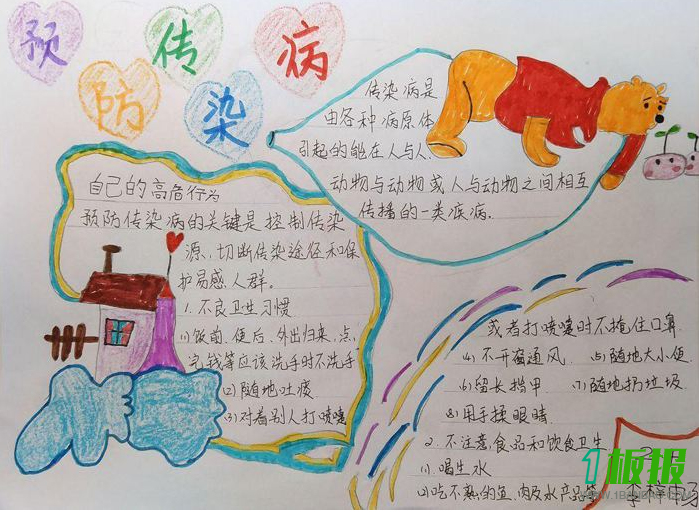 预防传染病
传染病是
由各种病原体
引起的能在人与人、
动物与动物或人与动物之间相互
传播的一类疾病.
自己的高危行为
预防传染病的关键是控制传染
源、切断传染途径和保
护易感人群。
1.不良卫生习惯
(1)饭前、便后、外出归来、点
完钱等应该洗手时不洗手
(2)随地吐痰
(3)对着别人打喷嚏
或者打喷嚏时不掩住口鼻
(4)不开窗通风 (5)随地大小便
(6)留长指甲 (7)随地扔垃圾
(8)用手揉眼睛
2.不注意食品和饮食卫生
(1)喝生水
(2)吃不熟的鱼、肉及水产品等
1板报
李梓